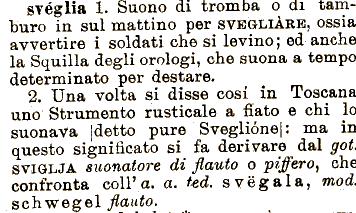 svéglia 1. Suono di tromba o di tam-
buro in sul mattino per SVEGLIÀRE, ossia
avvertire i soldati che si levino; ed anche
la Squilla degli orologi, che suona a tempo
determinato per destare.
2. Una volta si disse così in Toscana
uno Strumento rusticale a fiato e chi lo
suonava |detto pure Svegliône|: ma in
questo significato si fa derivare dal got.
SVIGLJA suonatore di flauto o piffero, che
confronta coll' a. a. ted. svëgala, mod.
schwegel flauto.